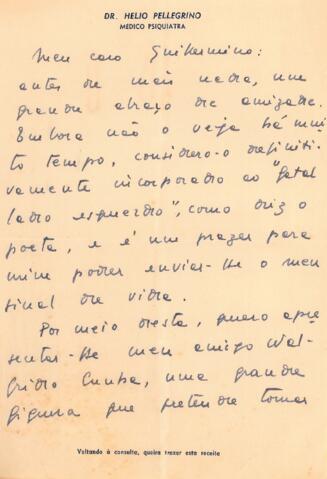 DR. HELIO PELLEGRINO
MÉDICO PSIQUIATRA
Meu caro Guilhermino:
antes de mais nada, um
grande abraço de amizade.
Embora não o veja há mui
to tempo, considero-o definiti-
vamente incorporado ao "fatal
lado esquerdo", como diz o
poeta, e é um prazer para
mim poder enviar-lhe o meu
sinal de vida.
Por meio desta, quero apre
sentar-lhe meu amigo Wal-
frido Cunha, uma grande
figura que pretende tomar
Voltando à consulta, queira trazer esta receita